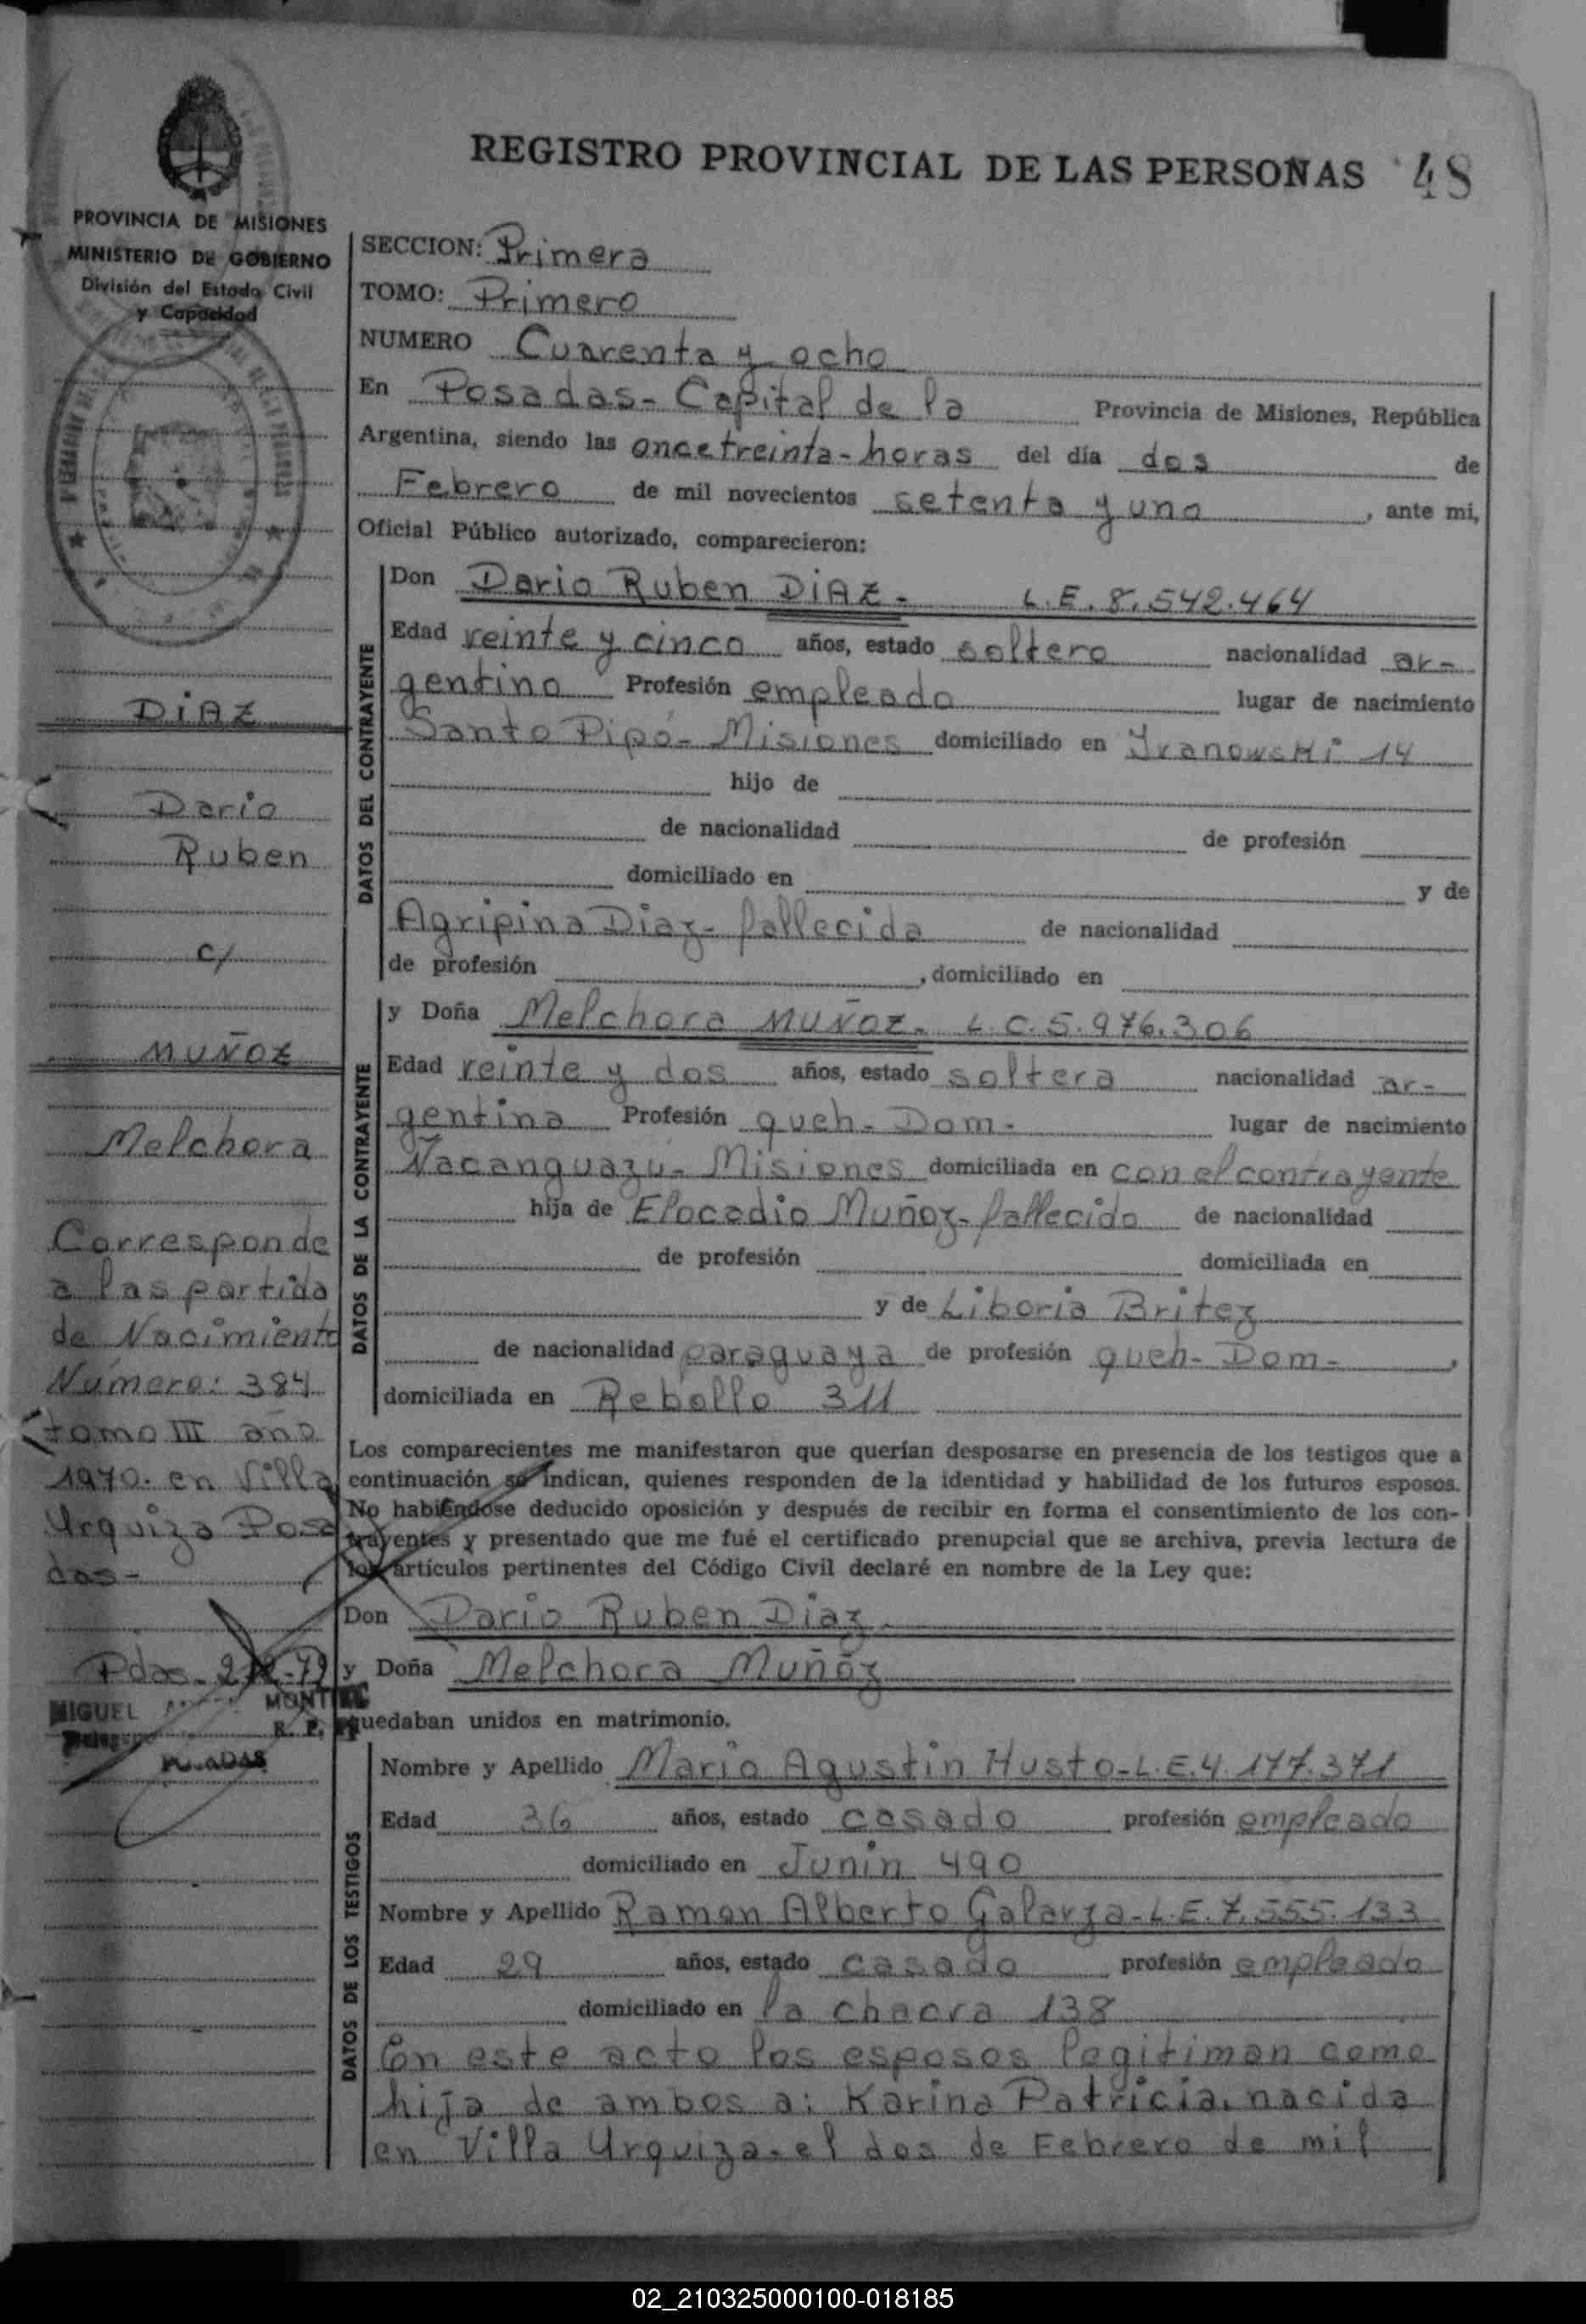 REGISTRO PROVINCIAL DE LAS PERSONAS 48
PROVINCIA DE MISIONES
MINISTERIO DE GOBIERNO
División del Estado Civil
y Capacidad
DIAZ
Dario
Ruben
c/
MUÑOZ
Melchora
Corresponde
a las partida
de Nacimiento
Número: 384
tomo III año
1970. en Villa
Urquiza Posa
das-
Pdas-
MIGUEL MONTIEL
R. P.
SECCION: Primera
TOMO: Primero
NUMERO Cuarenta y ocho
En Posadas- Capital de la Provincia de Misiones, República
Argentina, siendo las once treinta- horas del día dos de
Febrero de mil novecientos setenta y uno, ante mi,
Oficial Público autorizado, comparecieron:
DATOS DEL CONTRAYENTE
Don Dario Ruben DIAZ- L.E. 8.542.464
Edad veinte y cinco años, estado soltero nacionalidad ar-
gentino Profesión empleado lugar de nacimiento
Santo Pipó- Misiones domiciliado en Ivanowski 14
hijo de
de nacionalidad de profesión
domiciliado en y de
Agripina Diaz- fallecida de nacionalidad
de profesión , domiciliado en
DATOS DE LA CONTRAYENTE
y Doña Melchora MUÑOZ- L.C. 5.976.306
Edad veinte y dos años, estado soltera nacionalidad ar-
gentina Profesión queh- Dom- lugar de nacimiento
Ñacanguazú- Misiones domiciliada en con el contrayente
hija de Elocadio Muñoz- fallecido de nacionalidad
de profesión domiciliada en
y de Liboria Britez
de nacionalidad paraguaya de profesión queh- Dom- ,
domiciliada en Rebollo 311
Los comparecientes me manifestaron que querían desposarse en presencia de los testigos que a
continuación se indican, quienes responden de la identidad y habilidad de los futuros esposos.
No habiéndose deducido oposición y después de recibir en forma el consentimiento de los con-
trayentes y presentado que me fué el certificado prenupcial que se archiva, previa lectura de
los artículos pertinentes del Código Civil declaré en nombre de la Ley que:
Don Dario Ruben Diaz
y Doña Melchora Muñóz
quedaban unidos en matrimonio.
DATOS DE LOS TESTIGOS
Nombre y Apellido Mario Agustin Husto- L.E. 4.177.371
Edad 36 años, estado casado profesión empleado
domiciliado en Junin 490
Nombre y Apellido Ramon Alberto Galarza- L.E. 7.555.133
Edad 29 años, estado casado profesión empleado
domiciliado en la chacra 138
En este acto los esposos legitiman como
hija de ambos a: Karina Patricia, nacida
en Villa Urquiza- el dos de Febrero de mil
02_210325000100-018185